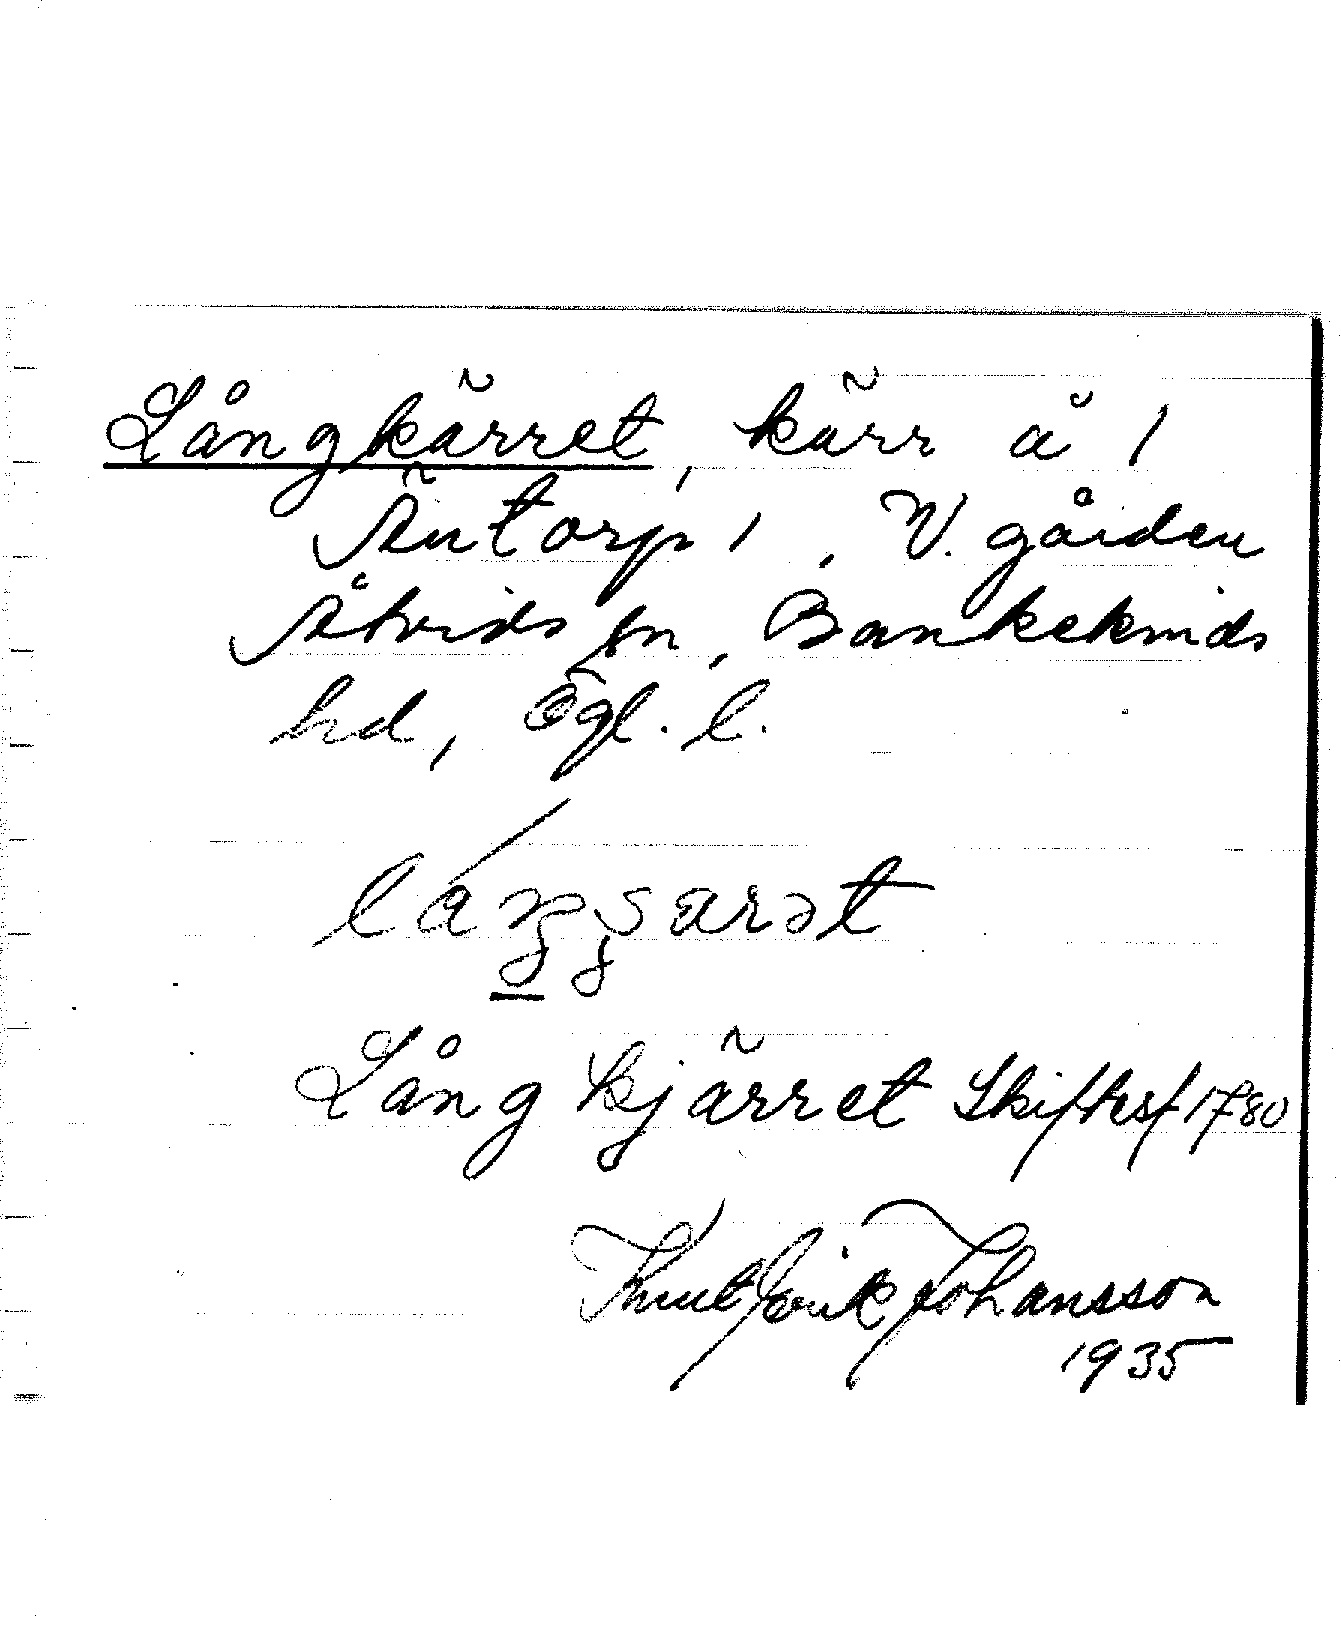 Långkärret, kärr å 1
Äntorp 1, V. gården
Åtvids sn, Bankekinds
hd, Ögl. l.
Långkjärret Skiftesf 1780
Knut Erik Johansson
1935